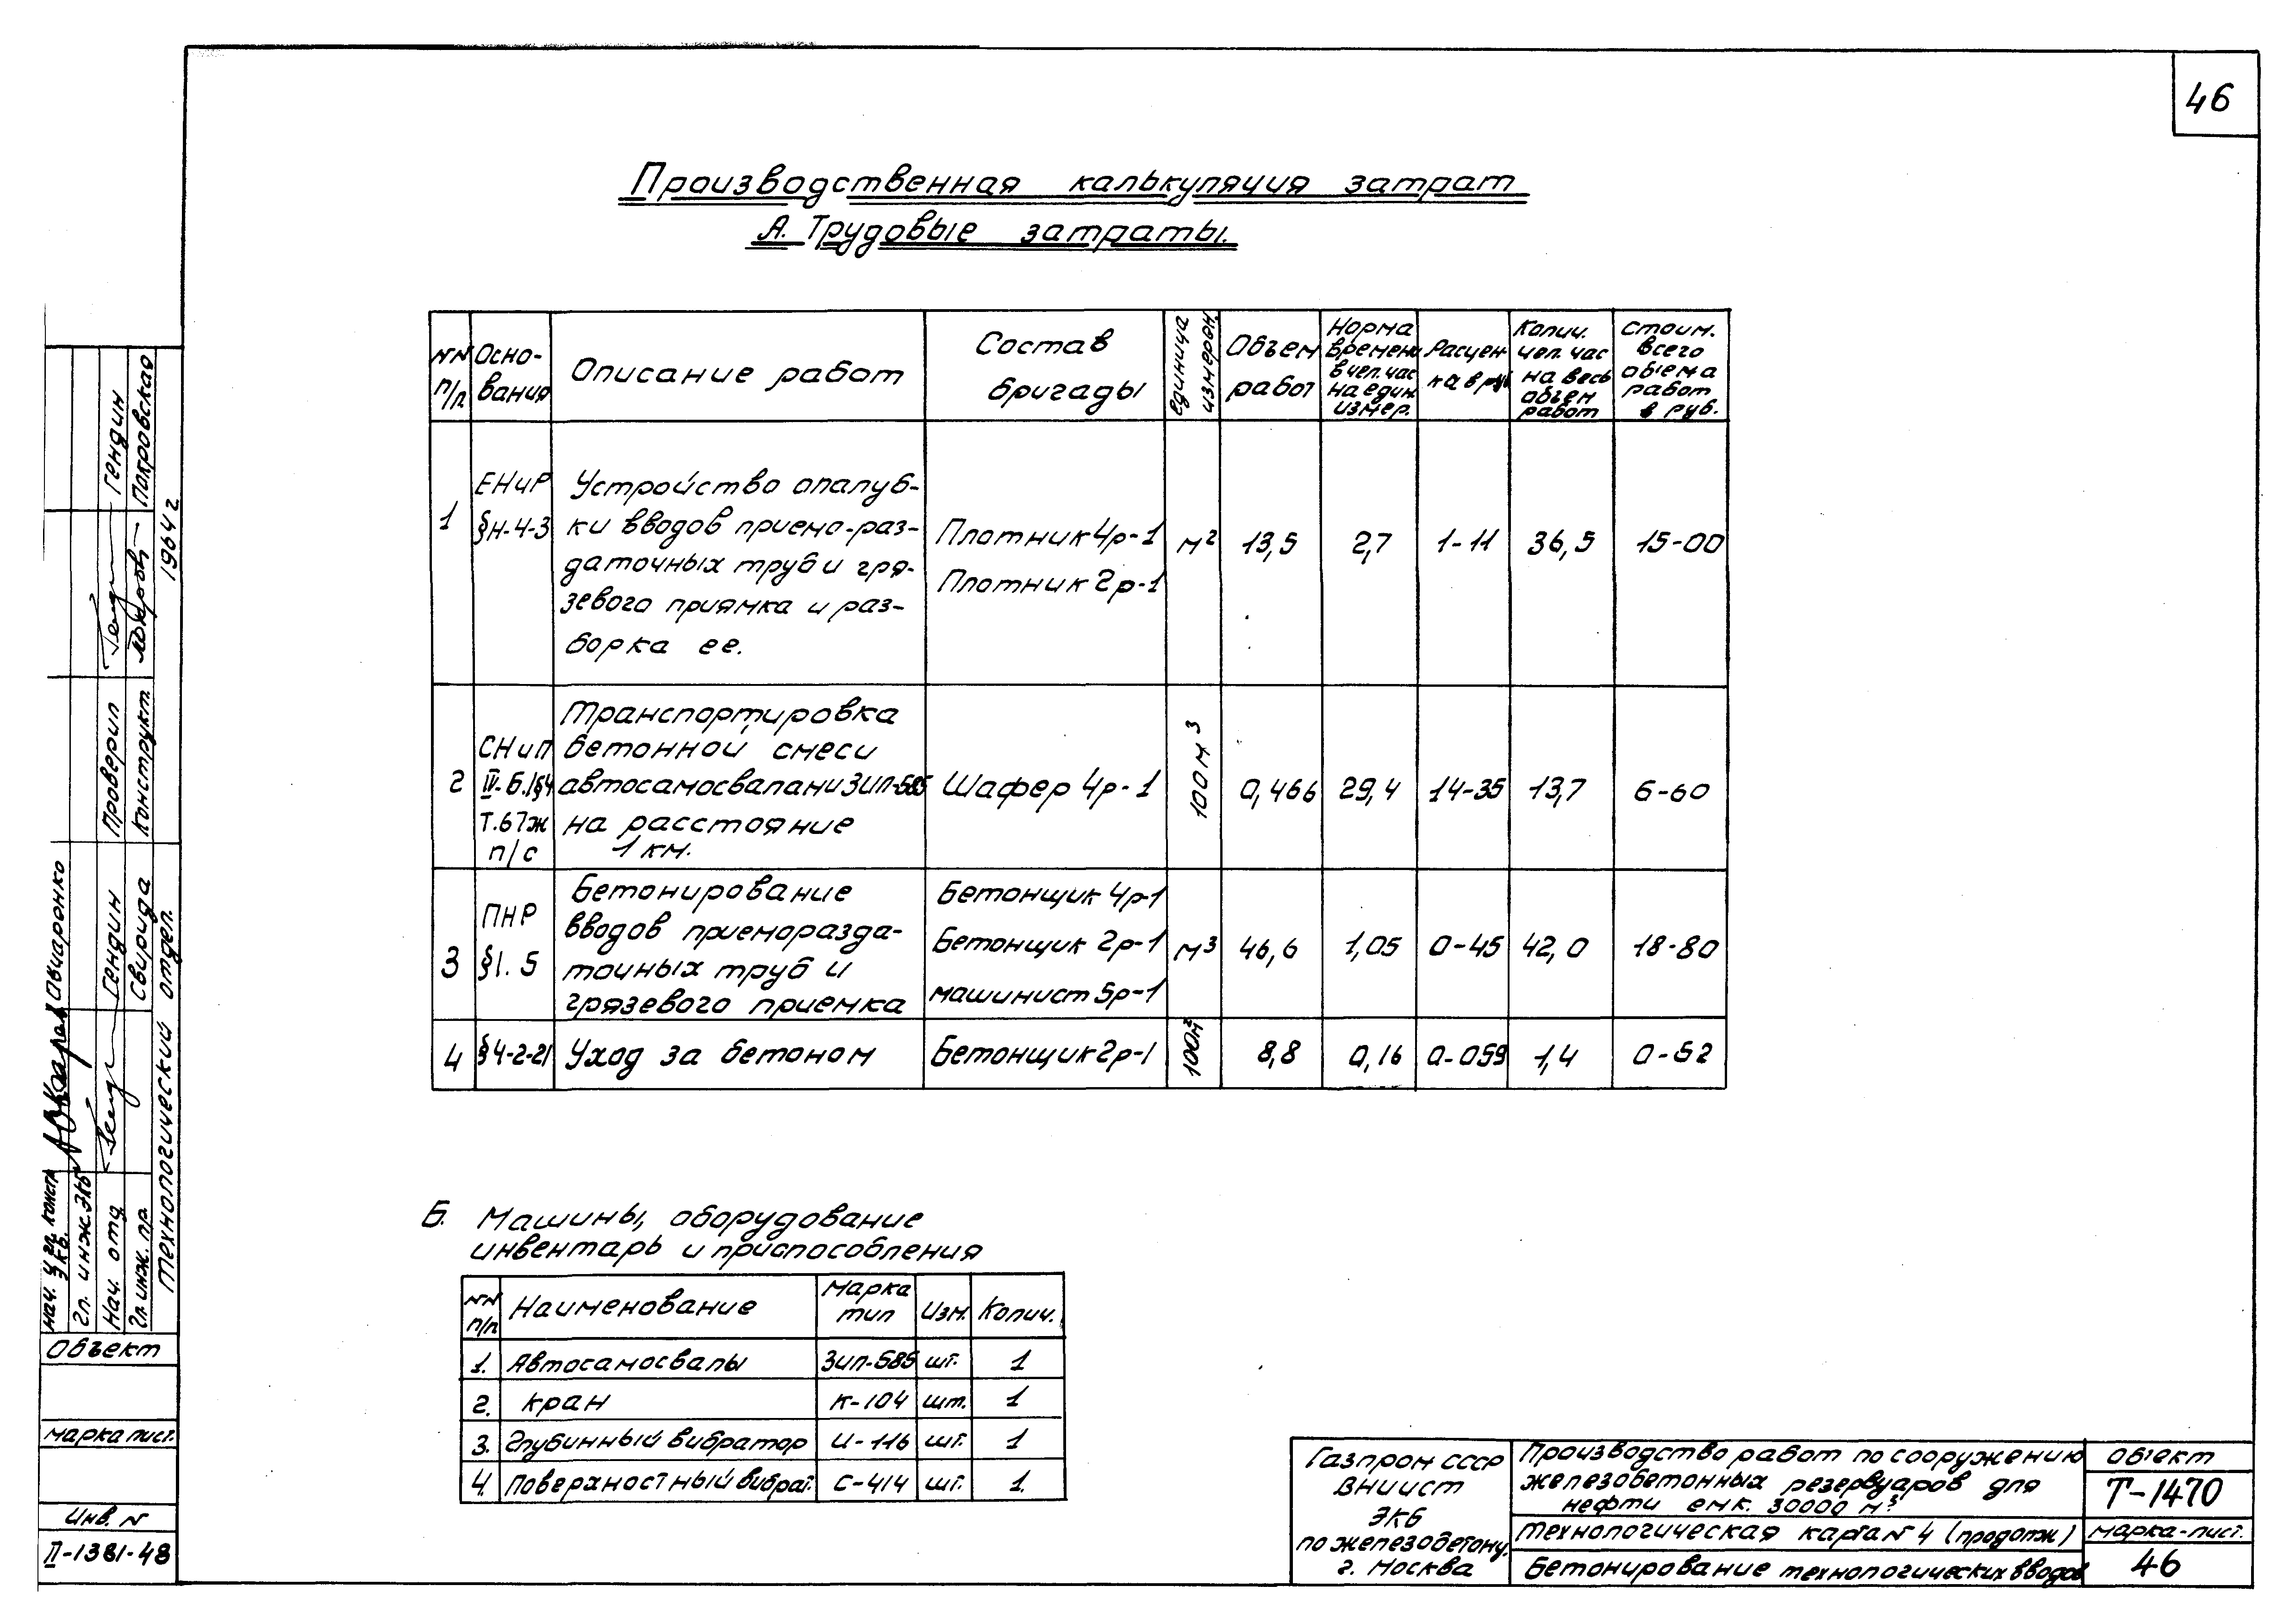 46
Производственная калькуляция затрат
А. Трудовые затраты.
NN п/п
Осно-
вания
Описание работ
Состав
бригады
единица
измерен.
Объем
работ
Норма
времени
в чел. час
на един.
измер.
Расцен
ка в руб
Колич.
чел. час
на весь
объем
работ
Стоим.
всего
объема
работ
в руб.
1
ЕНиР
§н-4-3
Устройство опалуб-
ки вводов приемо-раз-
даточных труб и гря-
зевого приямка и раз-
борка ее.
Плотник 4р-1
Плотник 2р-1
м²
13,5
2,7
1-11
36,5
15-00
2
СНиП
IV-б.1§4
Т.67ж
п/с
Транспортировка
бетонной смеси
автосамосвалами ЗИЛ-585
на расстояние
1 км.
Шафер 4р-1
100м³
0,466
29,4
14-35
13,7
6-60
3
ПНР
§1.5
Бетонирование
вводов приеморазда-
точных труб и
грязевого приемка
Бетонщик 4р-1
Бетонщик 2р-1
машинист 5р-1
м³
46,6
1,05
0-45
42,0
18-80
4
§4-2-21
Уход за бетоном
Бетонщик 2р-1
100м²
8,8
0,16
0-059
1,4
0-52
Б. Машины, оборудование
инвентарь и приспособления
NN п/п
Наименование
Марка
тип
Изм.
Колич.
1. Автосамосвалы Зил-585 шт. 1
2. кран К-104 шт. 1
3. Глубинный вибратор И-116 шт. 1
4. Поверхностный вибрат. С-414 шт. 1.
Газпром СССР
ВНИИСТ
ЭКБ
по железобетону.
г. Москва
Производство работ по сооружению
железобетонных резервуаров для
нефти емк. 30000 м³
технологическая карта N 4 (продолж)
Бетонирование технологических вводов
объект
Т-1470
марка-лист.
46
нач. и гл. констр.
ЭКБ.
Гл. инж. ЭКБ
Овчаренко
Нач. отд
Гендин
Гл. инж. пр.
Свирида
Проверил
Гендин
Конструкт.
Покровская
технологический отдел.
1964г
Объект
марка лист.
Инв. N
II-1381-48